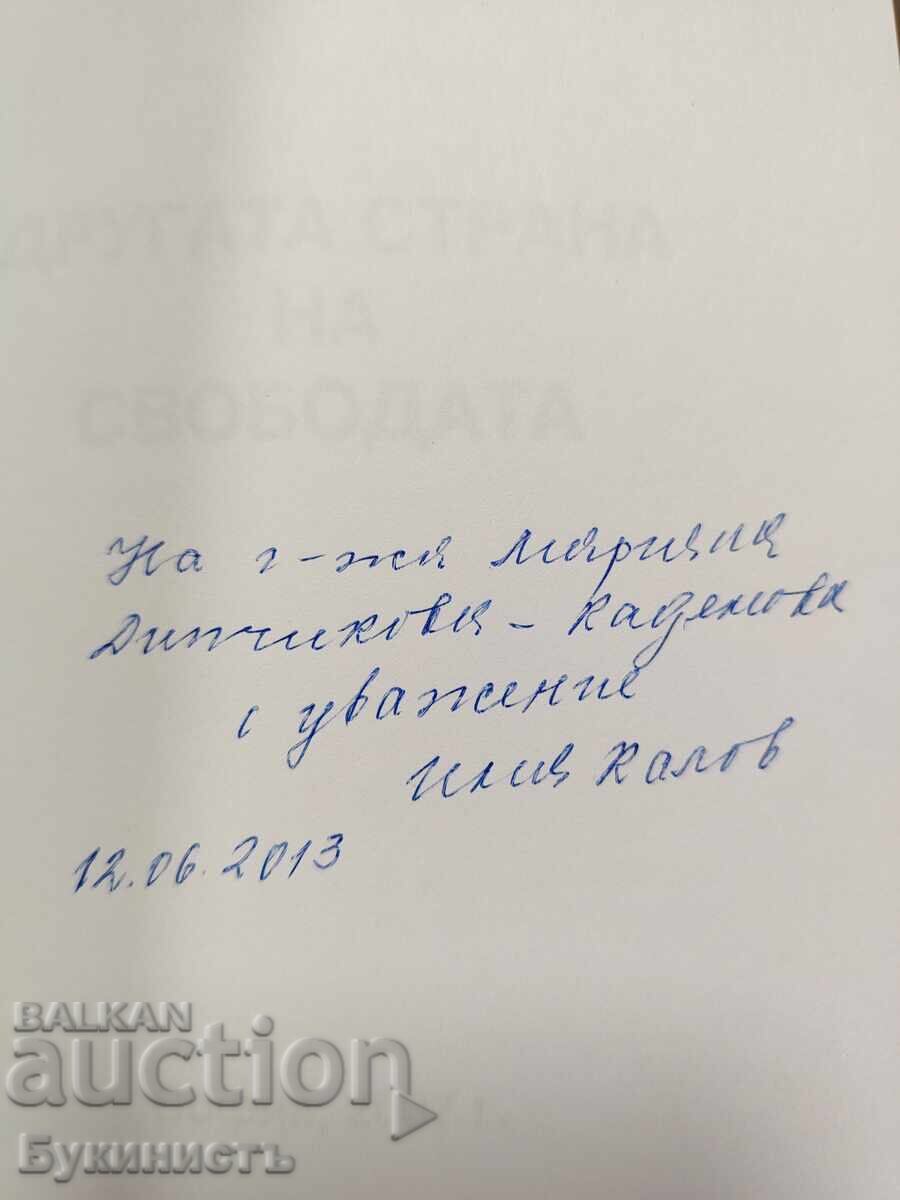 ДРУГАТА СТРАНА
НА
СВОБОДАТА
На г-жа Мариана
Дипчикова - Каденова
с уважение
Илия Калов
12.06.2013
BALKAN
auction
Букинистъ